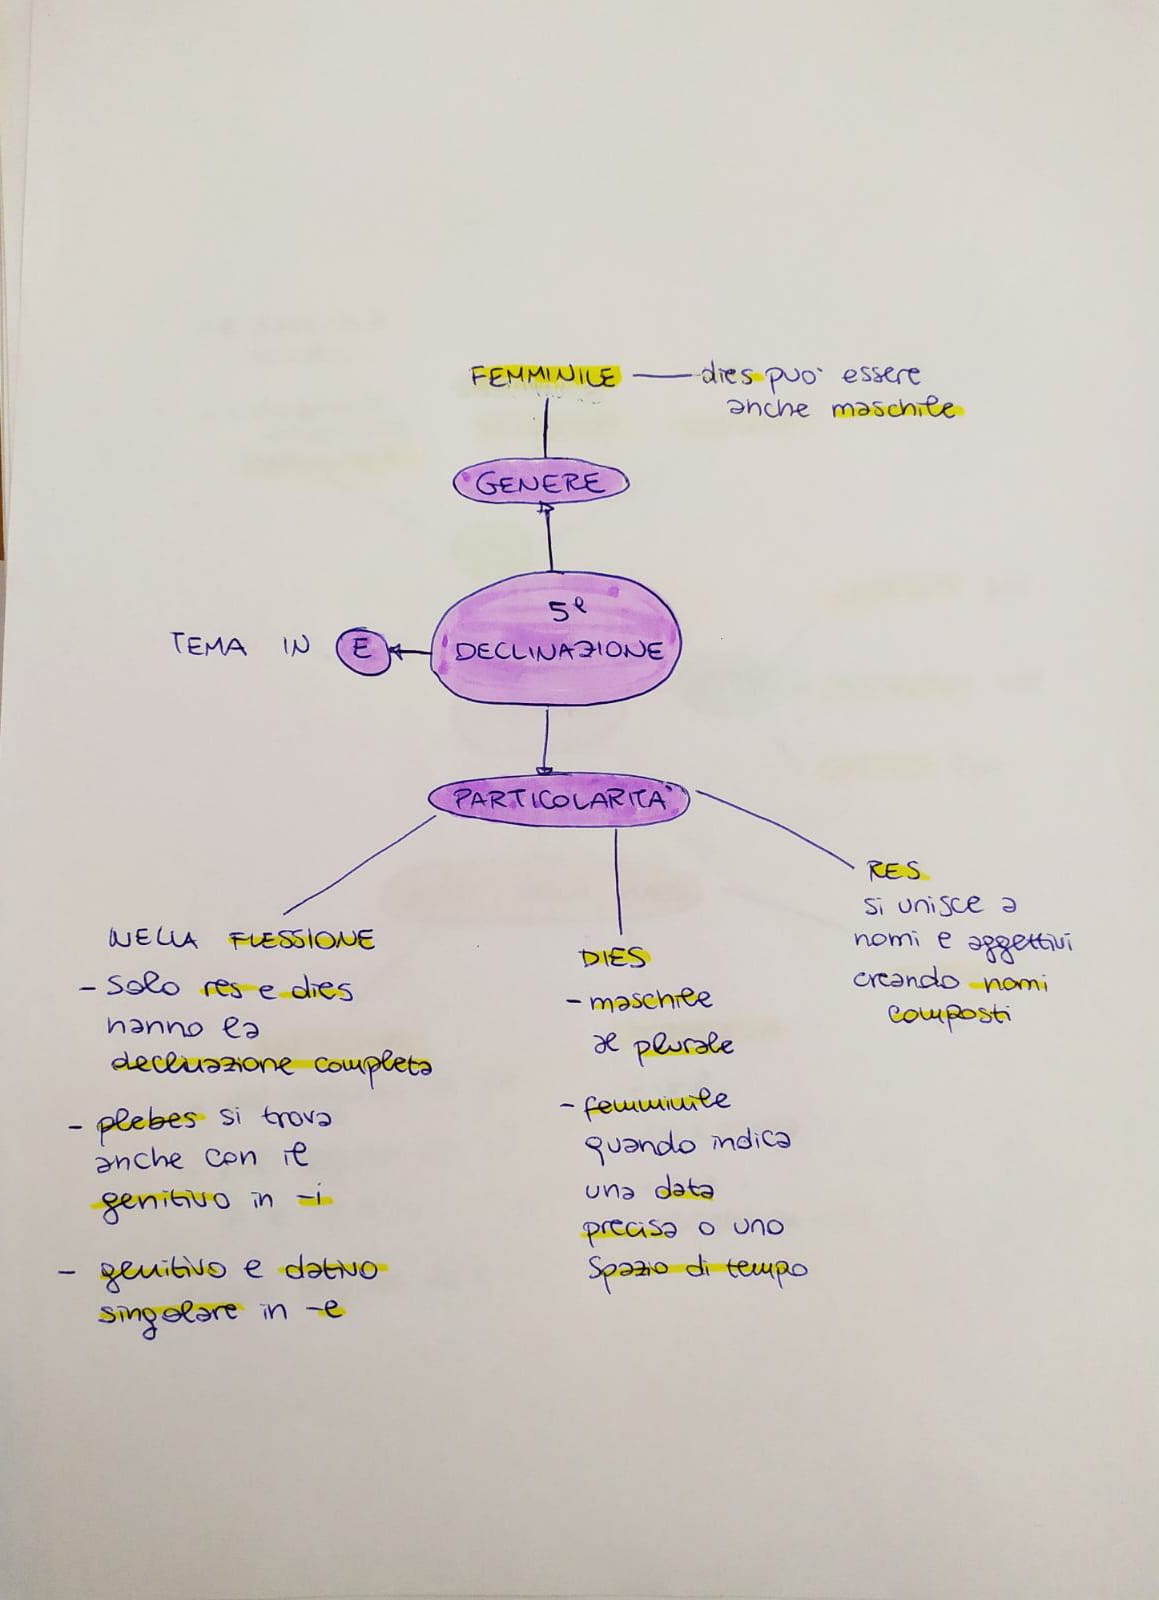 FEMMINILE — dies può essere
anche maschile
GENERE
5ª
DECLINAZIONE
TEMA IN E
PARTICOLARITÀ
NELLA FLESSIONE
- solo res e dies
hanno la
declinazione completa
- plebes si trova
anche con il
genitivo in -i
- genitivo e dativo
singolare in -e
DIES
- maschile
al plurale
- femminile
quando indica
una data
precisa o uno
spazio di tempo
RES
si unisce a
nomi e aggettivi
creando nomi
composti